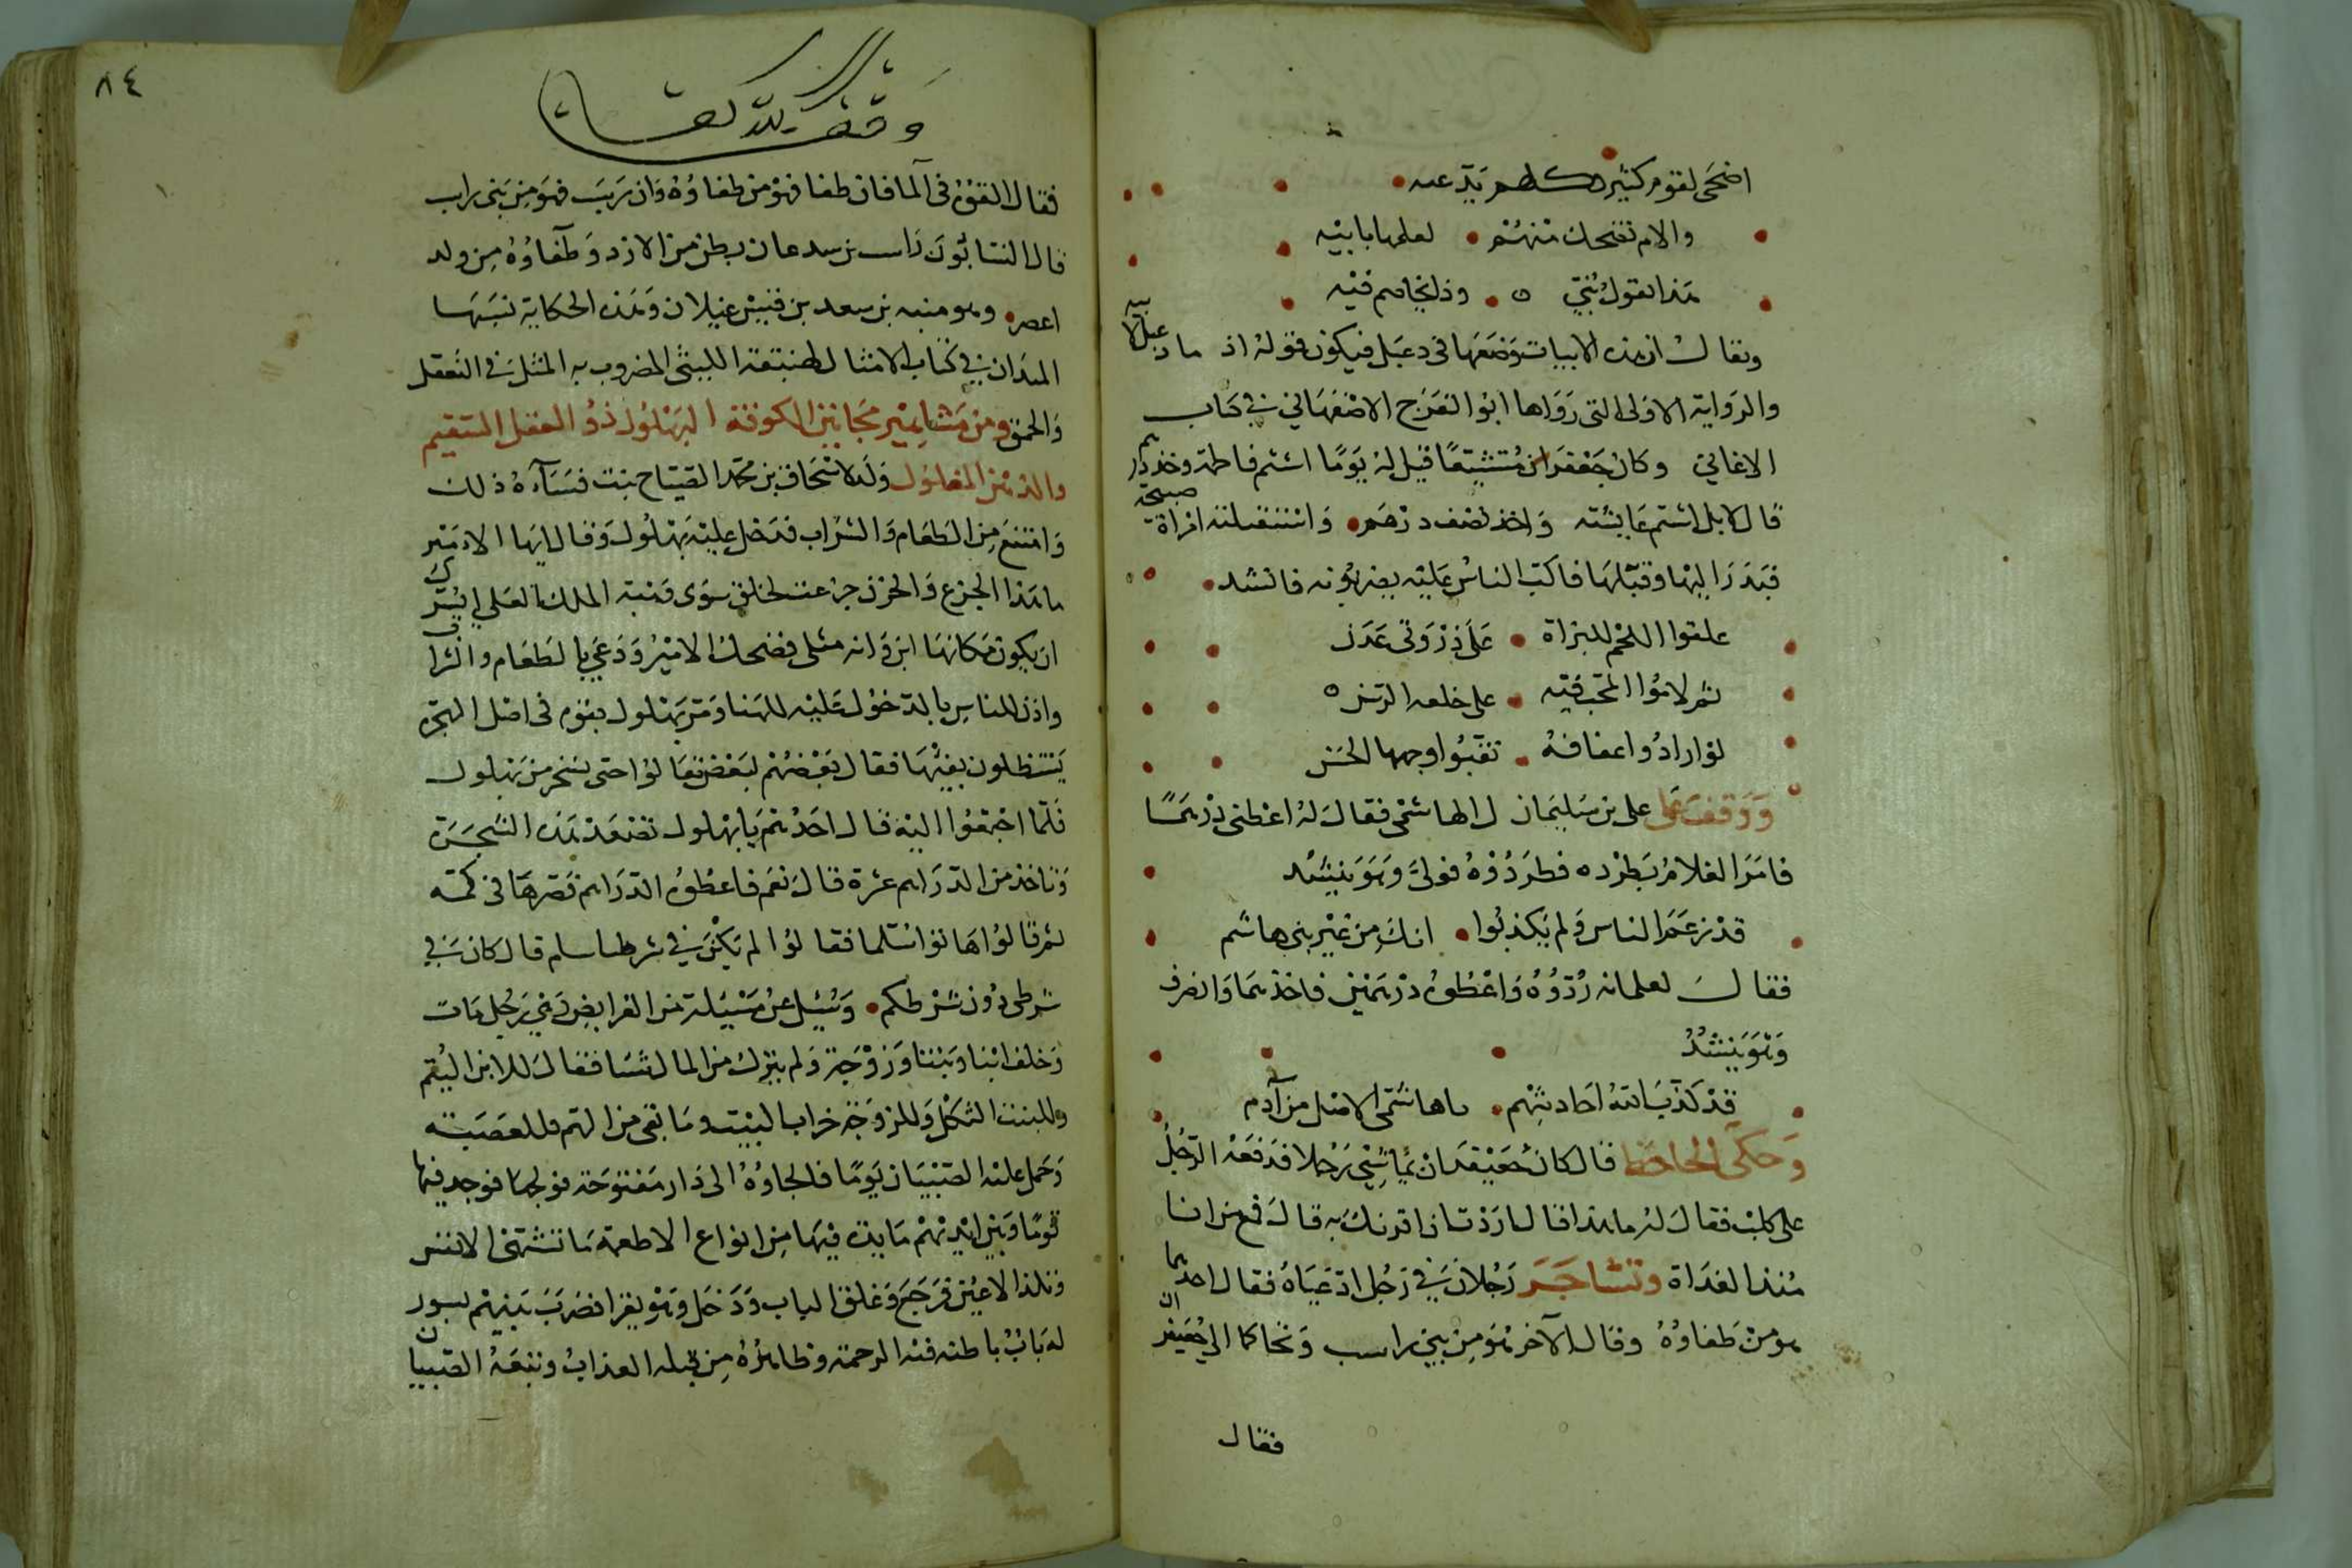 اضحى لقوم كثير كلهم يدعيه
والام تضحك منهم لعلمها بابيه
هذا يقول بنيي وذا يخاصم فيه
ويقال ان هذه الابيات وضعها في دعبل فيكون قوله اذ ما دعبل لابيه
والرواية الاولى التي رواها ابو الفرج الاصفهاني في كتاب
الاغاني وكان جعفران متشيعًا قيل له يومًا اشتم فاطمة وخذ درهم
قال لا بل اشتم عايشة واخذ نصف درهم واستقبلته امراة صبيحة
فبدر اليها وقبلها فاكب الناس عليه يضربونه فانشد
علقوا اللحم للبزاة على ذروتي عدن
ثم لاموا المحب فيه على خلعه الرسن
لو ارادوا عفافه نقبوا وجهها الحسن
ووقف على علي بن سليمان الهاشمي فقال له اعطني درهمًا
فامر الغلام بطرده فطردوه فولى وهو ينشد
قد زعم الناس ولم يكذبوا انك من غير بني هاشم
فقال لغلمانه ردوه واعطوه درهمين فاخذهما وانصرف
وهو ينشد
قد كذب الله احاديثهم يا هاشمي الاصل من آدم
وحكى الجاحظ قال كان جعيفران يماشي رجلا فدفعه الرجل
على كلب فقال له ما هذا قال اردت ان اقرنك به قال فمع من انا
منذ الغداة وتشاجر رجلان في رجل ادعياه فقال احدهما
هو من طفاوة وقال الآخر هو من بني راسب وتحاكما الى جعيفران
فقال
٨٤
وقف لله تعالى
فقال القوه في الما فان طفا فهو من طفاوة وان رسب فهو من بني راسب
قال النسابون راسب بن ميدعان بطن من الازد وطفاوة من ولد
اعصر وهو منبه بن سعد بن قيس عيلان وهذه الحكاية نسبها
الميداني في كتاب الامثال لهبنقة القيسي المضروب به المثل في التغفل
والحمق ومن مشاهير مجانين الكوفة البهلول ذو العقل السقيم
والذهن المغلول ولد لاسحاق بن محمد الصباح بنت فساءه ذلك
وامتنع من الطعام والشراب فدخل عليه بهلول وقال ايها الامير
ما هذا الجزع والحزن جزعت لخلق سوي وهبه الملك العلي ايسرك
ان يكون مكانها ابن وانه مثلي فضحك الامير ودعي بالطعام والشراب
واذن للناس بالدخول عليه للهنا ومر بهلول بقوم في اصل شجرة
يستظلون بفيئها فقال بعضهم لبعض تعالوا حتى نسخر من بهلول
فلما اجتمعوا اليه قال احدهم يا بهلول تصعد هذه الشجرة
وتاخذ من الدراهم عشرة قال نعم فاعطوه الدراهم فصرها في كمه
ثم قال هاتوا سلما فقالوا لم يكن في شرطنا سلم قال كان في
شرطي دون شرطكم وسئل عن مسئلة من الفرايض في رجل مات
وخلف ابنا وبنتا وزوجة ولم يترك من المال شيا فقال للابن اليتم
وللبنت الثكل وللزوجة خراب البيت وما بقي من الهم فللعصبة
وحمل عليه الصبيان يومًا فالجاوه الى دار مفتوحة فولجها فوجد فيها
قومًا وبين ايديهم مايدة فيها من انواع الاطعمة ما تشتهي الانفس
وتلذ الاعين فرجع وغلق الباب ودخل وهو يقرا فضرب بينهم بسور
له باب باطنه فيه الرحمة وظاهره من قبله العذاب وتبعه الصبيان